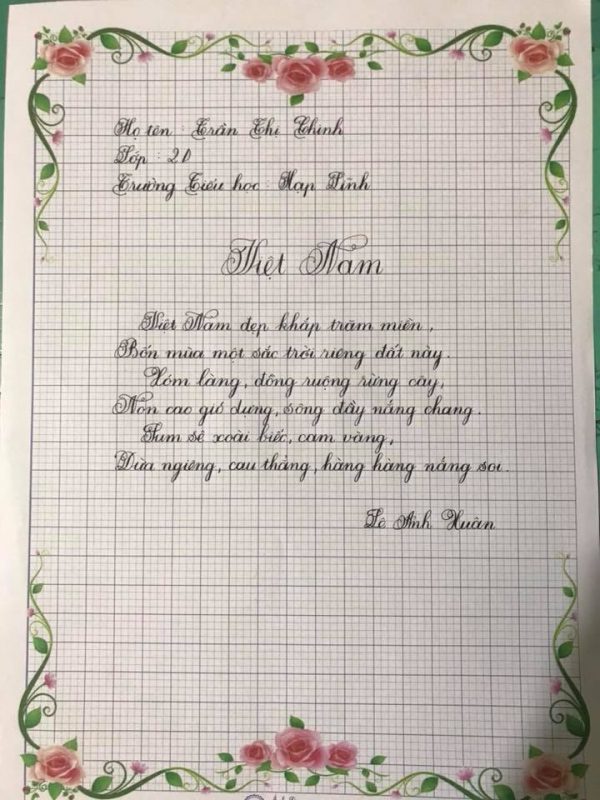 Họ tên : Trần Thị Thinh
Lớp : 2D
Trường Tiểu học : Hạp Lĩnh
Việt Nam
Việt Nam đẹp khắp trăm miền,
Bốn mùa một sắc trời riêng đất này.
Xóm làng, đồng ruộng rừng cây,
Non cao gió dựng, sông đầy nắng chang.
Sum sê xoài biếc, cam vàng,
Dừa ngiêng, cau thẳng, hàng hàng nắng soi.
Lê Anh Xuân